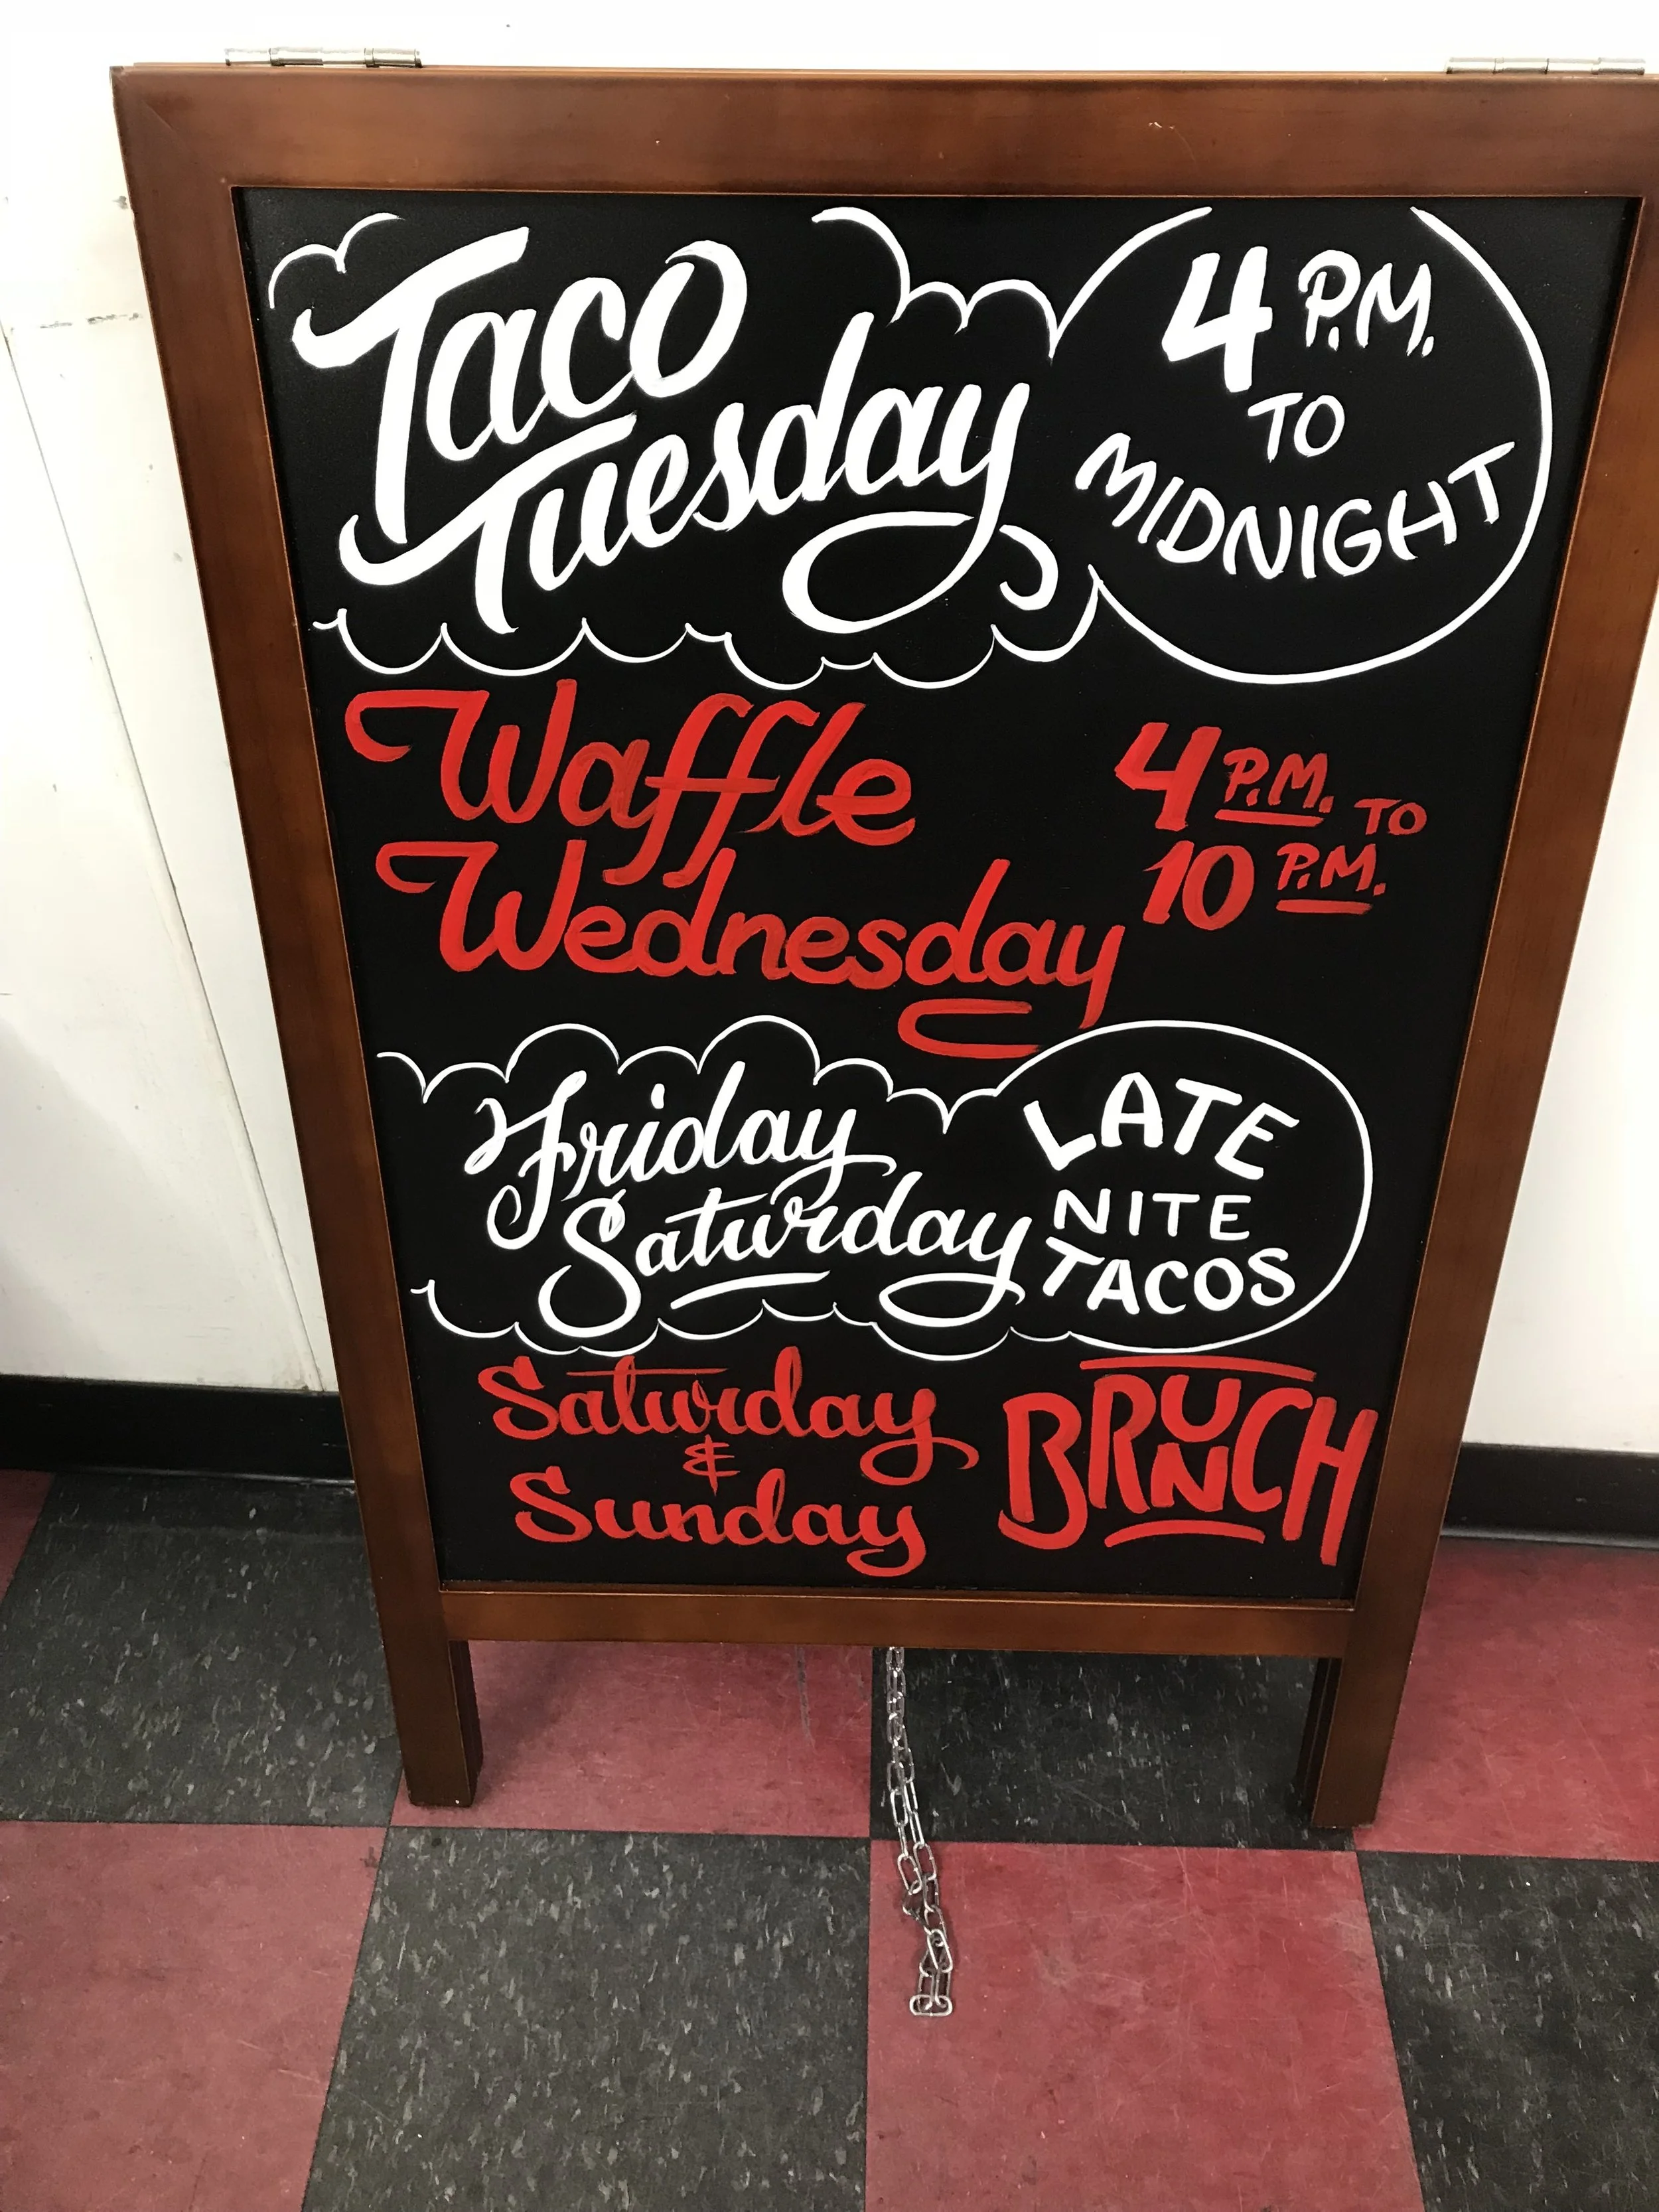 Taco
Tuesday
4 P.M.
TO
MIDNIGHT
Waffle
Wednesday
4 P.M. TO
10 P.M.
Friday
Saturday
LATE
NITE
TACOS
Saturday
&
Sunday
BRUNCH